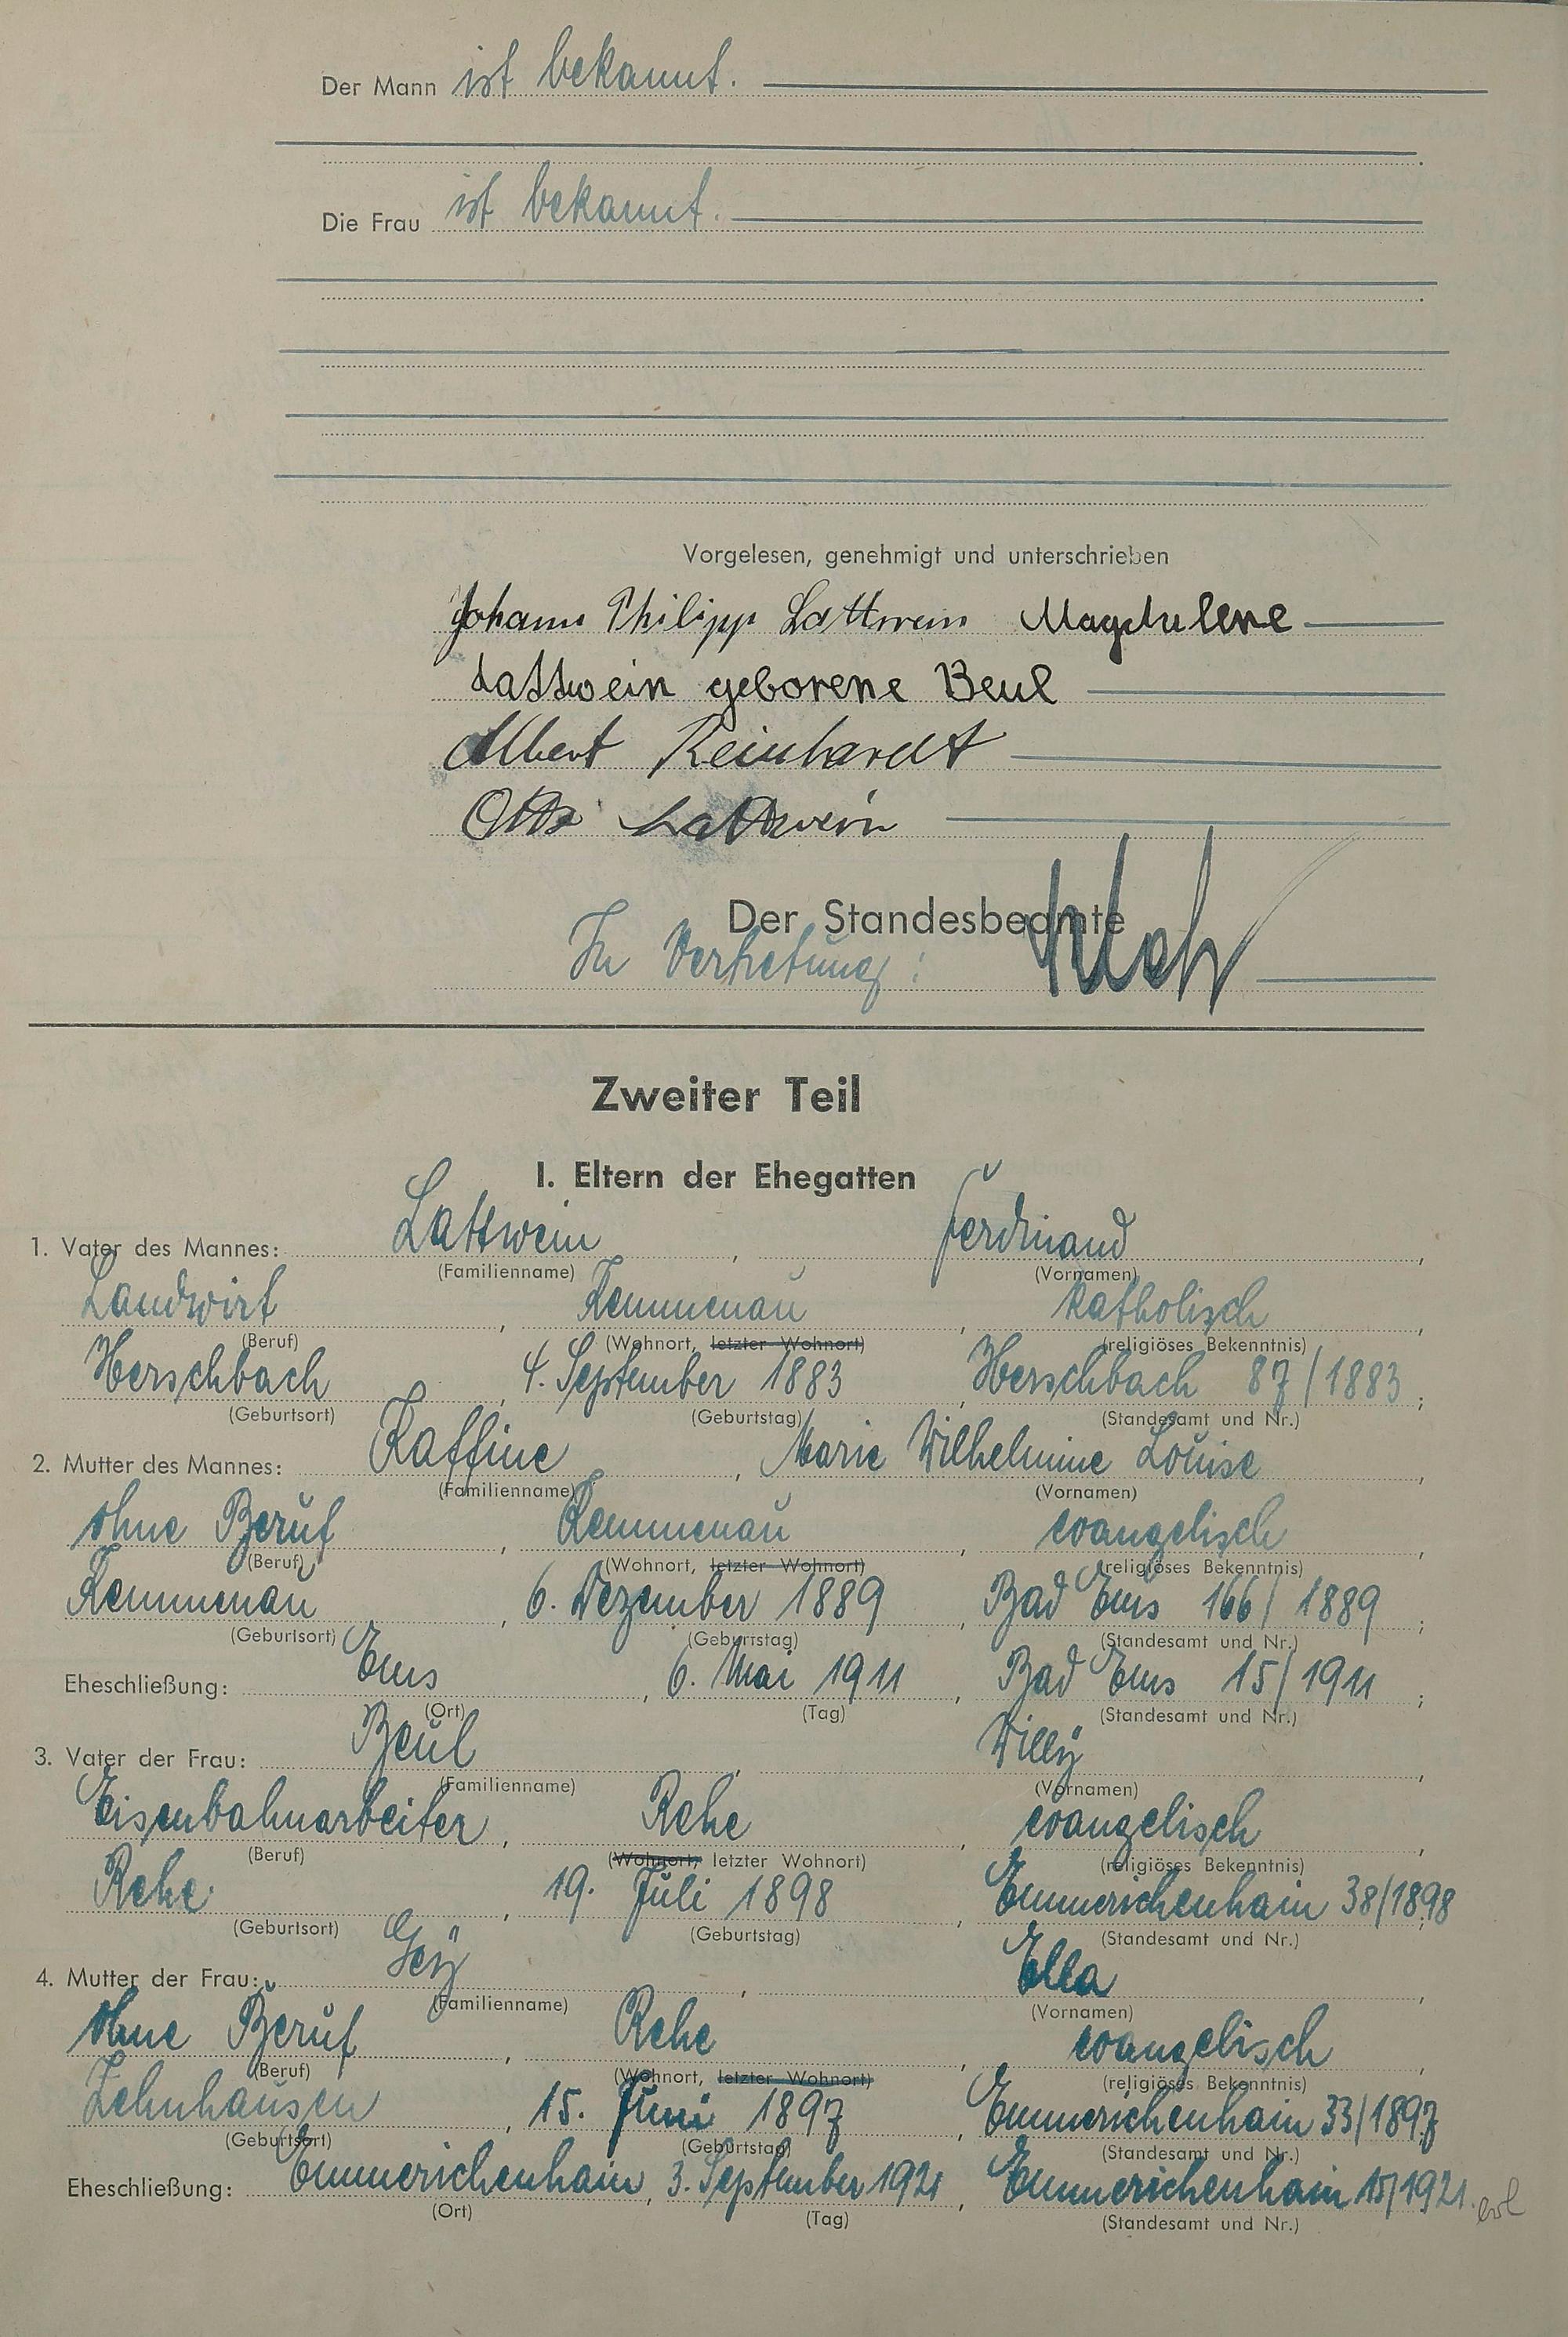 Der Mann ist bekannt.
Die Frau ist bekannt.
Vorgelesen, genehmigt und unterschrieben
Johann Philipp Lattwein Magdalene
Lattwein geborene Beul
Albert Reinhardt
Otto Lattwein
Der Standesbeamte
In Vertretung:
Zweiter Teil
I. Eltern der Ehegatten
1. Vater des Mannes: Lattwein, Ferdinand,
(Familienname) (Vornamen)
Landwirt, Kemmenau, katholisch,
(Beruf) (Wohnort, letzter Wohnort) (religiöses Bekenntnis)
Herschbach, 4. September 1883, Herschbach 87/1883;
(Geburtsort) (Geburtstag) (Standesamt und Nr.)
2. Mutter des Mannes: Kaffine, Marie Wilhelmine Louise,
(Familienname) (Vornamen)
ohne Beruf, Kemmenau, evangelisch,
(Beruf) (Wohnort, letzter Wohnort) (religiöses Bekenntnis)
Kemmenau, 6. Dezember 1889, Bad Ems 166/1889;
(Geburtsort) (Geburtstag) (Standesamt und Nr.)
Eheschließung: Ems, 6. Mai 1911, Bad Ems 15/1911;
(Ort) (Tag) (Standesamt und Nr.)
3. Vater der Frau: Beul, Willy,
(Familienname) (Vornamen)
Eisenbahnarbeiter, Rehe, evangelisch,
(Beruf) (Wohnort, letzter Wohnort) (religiöses Bekenntnis)
Rehe, 19. Juli 1898, Emmerichenhain 38/1898;
(Geburtsort) (Geburtstag) (Standesamt und Nr.)
4. Mutter der Frau: Gey, Ella,
(Familienname) (Vornamen)
ohne Beruf, Rehe, evangelisch,
(Beruf) (Wohnort, letzter Wohnort) (religiöses Bekenntnis)
Zehnhausen, 15. Juni 1897, Emmerichenhain 33/1897;
(Geburtsort) (Geburtstag) (Standesamt und Nr.)
Eheschließung: Emmerichenhain, 3. September 1921, Emmerichenhain 15/1921. erl
(Ort) (Tag) (Standesamt und Nr.)